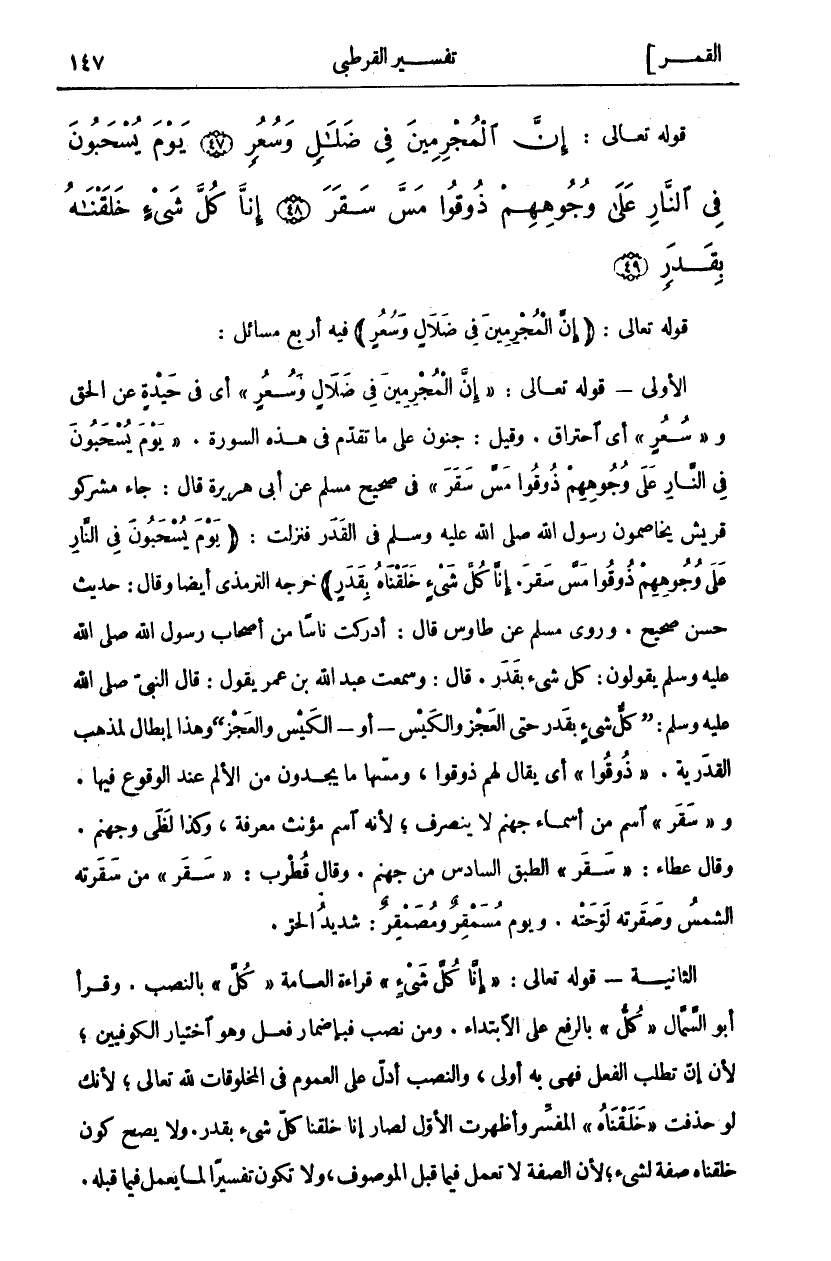 القمر] تفسير القرطبى ١٤٧
قوله تعالى : إِنَّ ٱلْمُجْرِمِينَ فِى ضَلَـٰلٍ وَسُعُرٍ ٤٧ يَوْمَ يُسْحَبُونَ
فِى ٱلنَّارِ عَلَىٰ وُجُوهِهِمْ ذُوقُوا مَسَّ سَقَرَ ٤٨ إِنَّا كُلَّ شَىْءٍ خَلَقْنَـٰهُ
بِقَدَرٍ ٤٩
قوله تعالى : ﴿ إِنَّ الْمُجْرِمِينَ فِى ضَلَالٍ وَسُعُرٍ ﴾ فيه أربع مسائل :
الأولى — قوله تعالى : « إِنَّ الْمُجْرِمِينَ فِى ضَلَالٍ وَسُعُرٍ » أى فى حَيْدةٍ عن الحق
و « سُعُرٍ » أى ٱحتراق . وقيل : جنون على ما تقدّم فى هذه السورة . « يَوْمَ يُسْحَبُونَ
فِى النَّارِ عَلَى وُجُوهِهِمْ ذُوقُوا مَسَّ سَقَرَ » فى صحيح مسلم عن أبى هريرة قال : جاء مشركو
قريش يخاصمون رسول الله صلى الله عليه وسلم فى القَدَر فنزلت : ﴿ يَوْمَ يُسْحَبُونَ فِى النَّارِ
عَلَى وُجُوهِهِمْ ذُوقُوا مَسَّ سَقَرَ. إِنَّا كُلَّ شَىْءٍ خَلَقْنَاهُ بِقَدَرٍ ﴾ خرجه الترمذى أيضا وقال : حديث
حسن صحيح . وروى مسلم عن طاوس قال : أدركت ناسًا من أصحاب رسول الله صلى الله
عليه وسلم يقولون : كل شىء بقَدَر . قال : وسمعت عبد الله بن عمر يقول : قال النبىّ صلى الله
عليه وسلم : ”كلُّ شىءٍ بقَدر حتى العَجْز والكَيْس — أو — الكَيْس والعَجْز“ وهذا إبطال لمذهب
القدَرية . « ذُوقُوا » أى يقال لهم ذوقوا ، ومسّها ما يجدون من الألم عند الوقوع فيها .
و « سَقَر » ٱسم من أسماء جهنم لا ينصرف ؛ لأنه ٱسم مؤنث معرفة ، وكذا لَظَى وجهنم .
وقال عطاء : « سَقَر » الطبق السادس من جهنم . وقال قُطْرب : « سَقَر » من سَقَرته
الشمسُ وصَقَرته لَوّحَتْه . ويوم مُسَمْقِرٌ ومُصَمْقِرٌ : شديدُ الحق .
الثانية — قوله تعالى : « إِنَّا كُلَّ شَىْءٍ » قراءة العامة « كُلَّ » بالنصب . وقرأ
أبو السَّمّال « كُلُّ » بالرفع على الٱبتداء . ومن نصب فبإضمار فعل وهو ٱختيار الكوفيين ؛
لأن إنّ تطلب الفعل فهى به أولى ، والنصب أدلّ على العموم فى المخلوقات لله تعالى ؛ لأنك
لو حذفت « خَلَقْنَاهُ » المفسِّر وأظهرت الأوّل لصار إنا خلقنا كلّ شىء بقدر . ولا يصح كون
خلقناه صفة لشىء ؛ لأن الصفة لا تعمل فيما قبل الموصوف ، ولا تكون تفسيرًا لما يعمل فيما قبله .